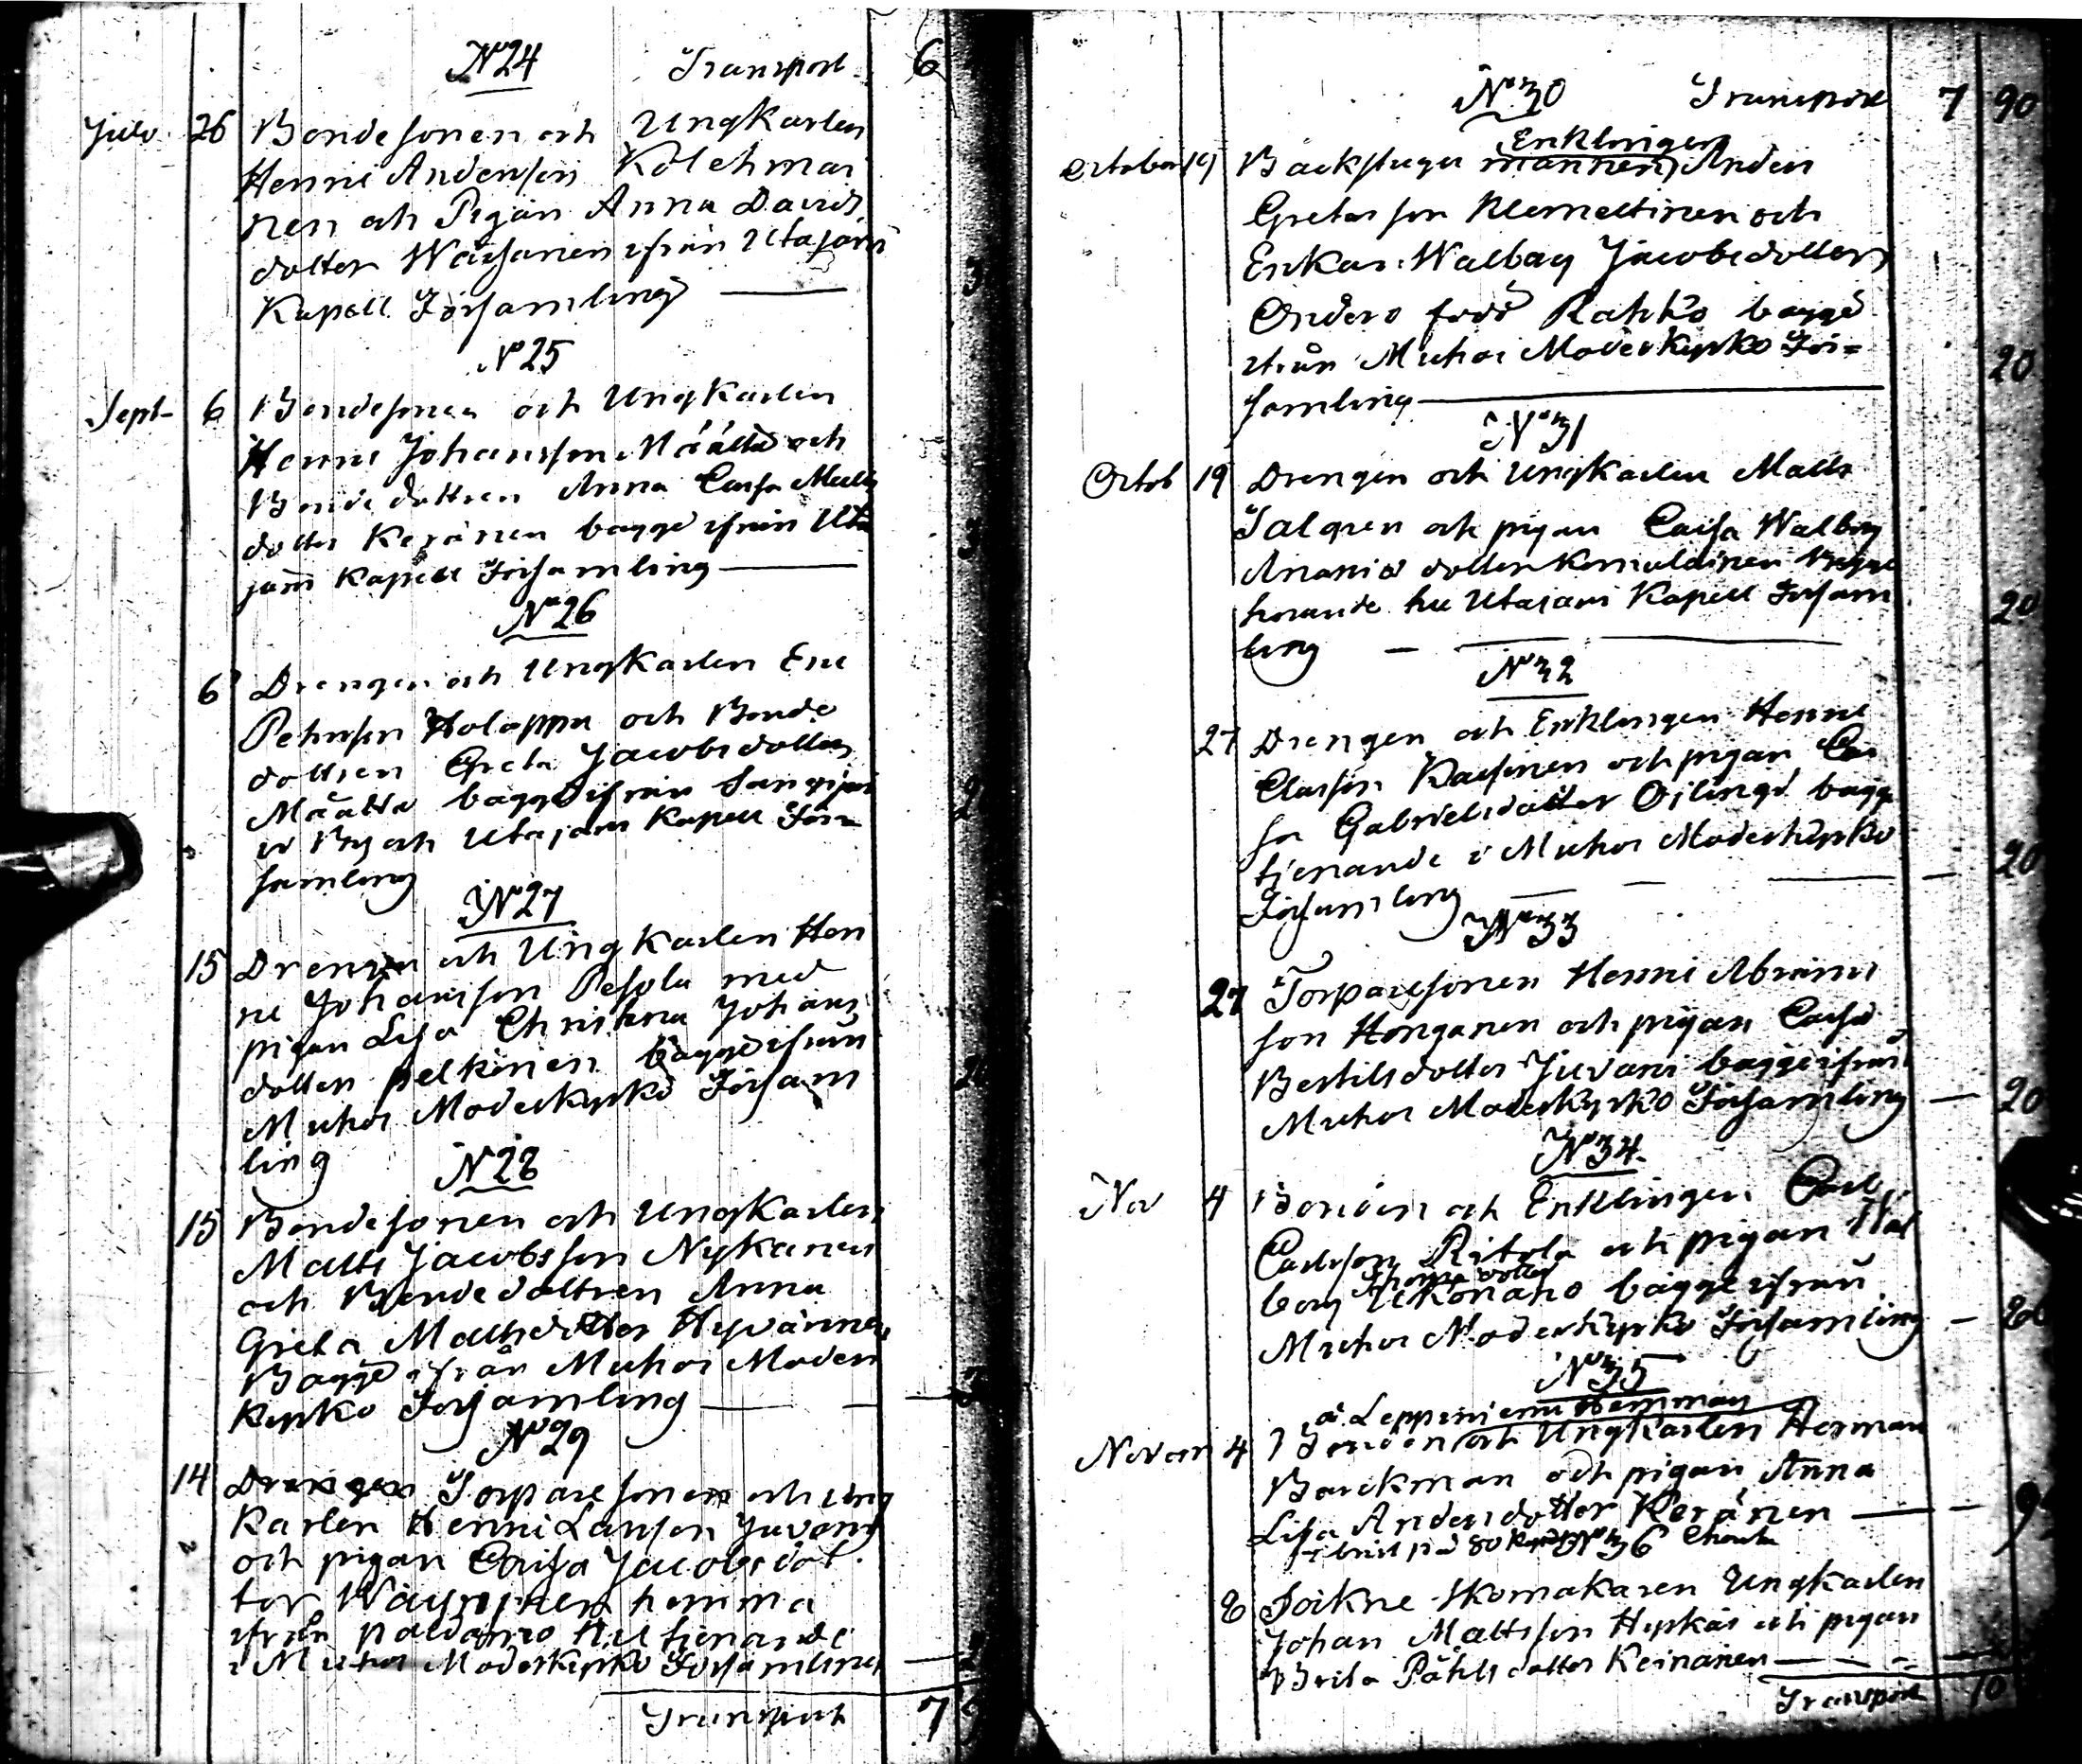 N° 24 Transport 6
Julii 26 Bondesonen och Ungkarlen
Henric Anderson Kolehmai
nen och Pigan Anna Davids
dotter Wäisänen ifrån Utajärvi
Kapell Församling —
N° 25
Sept- 6 Bondesonen och Ungkarlen
Henric Johansson Määttä och
Bonde dottren Anna Caisa Matts
dotter Keränen bagge ifrån Uta
järvi Kapell Församling —
N° 26
6 Drengen och Ungkarlen Eric
Petersson Holappa och Bonde
dottren Greta Jacobsdotter
Määttä bagge ifrån Sangijär
vi By och Utajärvi Kapell För-
samling
N° 27
15 Drengen och Ungkarlen Hen
ric Johansson Pesola med
pigan Lisa Christina Johans
dotter pelkinen bagge ifrån
Muhos Moderkyrko Försam
ling
N° 28
15 Bondesonen och Ungkarlen
Matts Jacobsson Nykänen
och Bondedottren Anna
Greta Mattsdotter Hyvärinen
Bagge ifrån Muhos Moder
Kyrko Församling —
N° 29
14 Drengen Torparesonen och ung
Karlen Henric Larsson Juvani
och pigan Caisa Jacobsdot
ter Wäyrynen hemma
ifrån paldamo Nu tienande
i Muhos Moderkyrko Församling
Transport 7
N° 30 Transport 7 90
Enklingen
October 19 Backstugu mannen Anders
Gretasson Klemettinen och
Enkan Walborg Jacobsdotter
Ondero född Rahko bagge
ifrån Muhos Moderkyrko För= 20
samling —
N° 31
Octob 19 Drengen och Ungkarlen Matts
Salgren och pigan Caisa Walborg
Ananias dotter Komulainen
horande till Utajärvi Kapell Försam 20
ling —
N° 32
27 Drengen och Enklingen Henric
Classon Karsinen och pigan Cai
sa Gabrielsdotter Ojlingi bagge
tjenande i Muhos Moderkyrko 20
Församling —
N° 33
27 Torparesonen Henric Abrams
son Honganen och pigan Caisa
Bertilsdotter Juvani bagge ifrån
Muhos Moderkyrko Församling — 20
N° 34
Nov 4 Bonden och Enklingen Carl
Carlsson Ritola och pigan Wal
Thomas dotter
borg Ukonaho bagge ifrån
Muhos Moderkyrko Församling — 20
N° 35
å Leppiniemi Hemman
Novem 4 Bonden och Ungkarlen Herman
Barckman och pigan Anna
Lisa Andersdotter Keränen —
N° 36
8 Sockne Skomakaren Ungkarlen
Johan Mattsson Hyrkäs och pigan
Brita Påhlsdotter Keinänen —
Transport 10